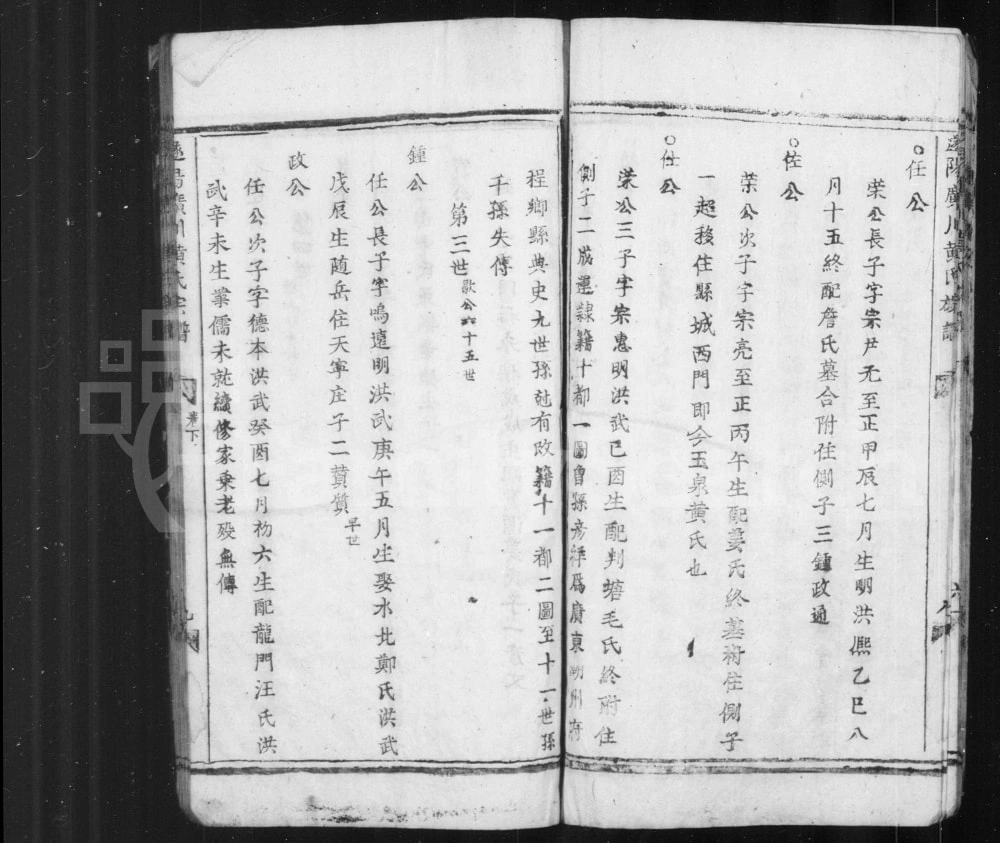 任公
荣公長子字宗尹元至正甲辰七月生明洪熙乙巳八
月十五終配詹氏墓合附住側子三鍾政通
佐公
荣公次子字宗亮至正丙午生配姜氏終墓祔住側子
一起移住縣城西門即今玉泉黄氏也
仕公
荣公三子字宗惠明洪武己酉生配判塘毛氏終附住
側子二成運隷籍十都一圖曾孫彦祥爲廣東州府
程鄉縣典史九世孫尅有改籍十一都二圖至十一世孫
千孫失傳
第三世歙公六十五世
鍾公
任公長子字鳴遠明洪武庚午五月生娶水北鄭氏洪武
戊辰生随岳住天寧庄子二蕡質早世
政公
任公次子字德本洪武癸酉七月初六生配龍門汪氏洪
武辛未生業儒未就續修家乗老歿無傳